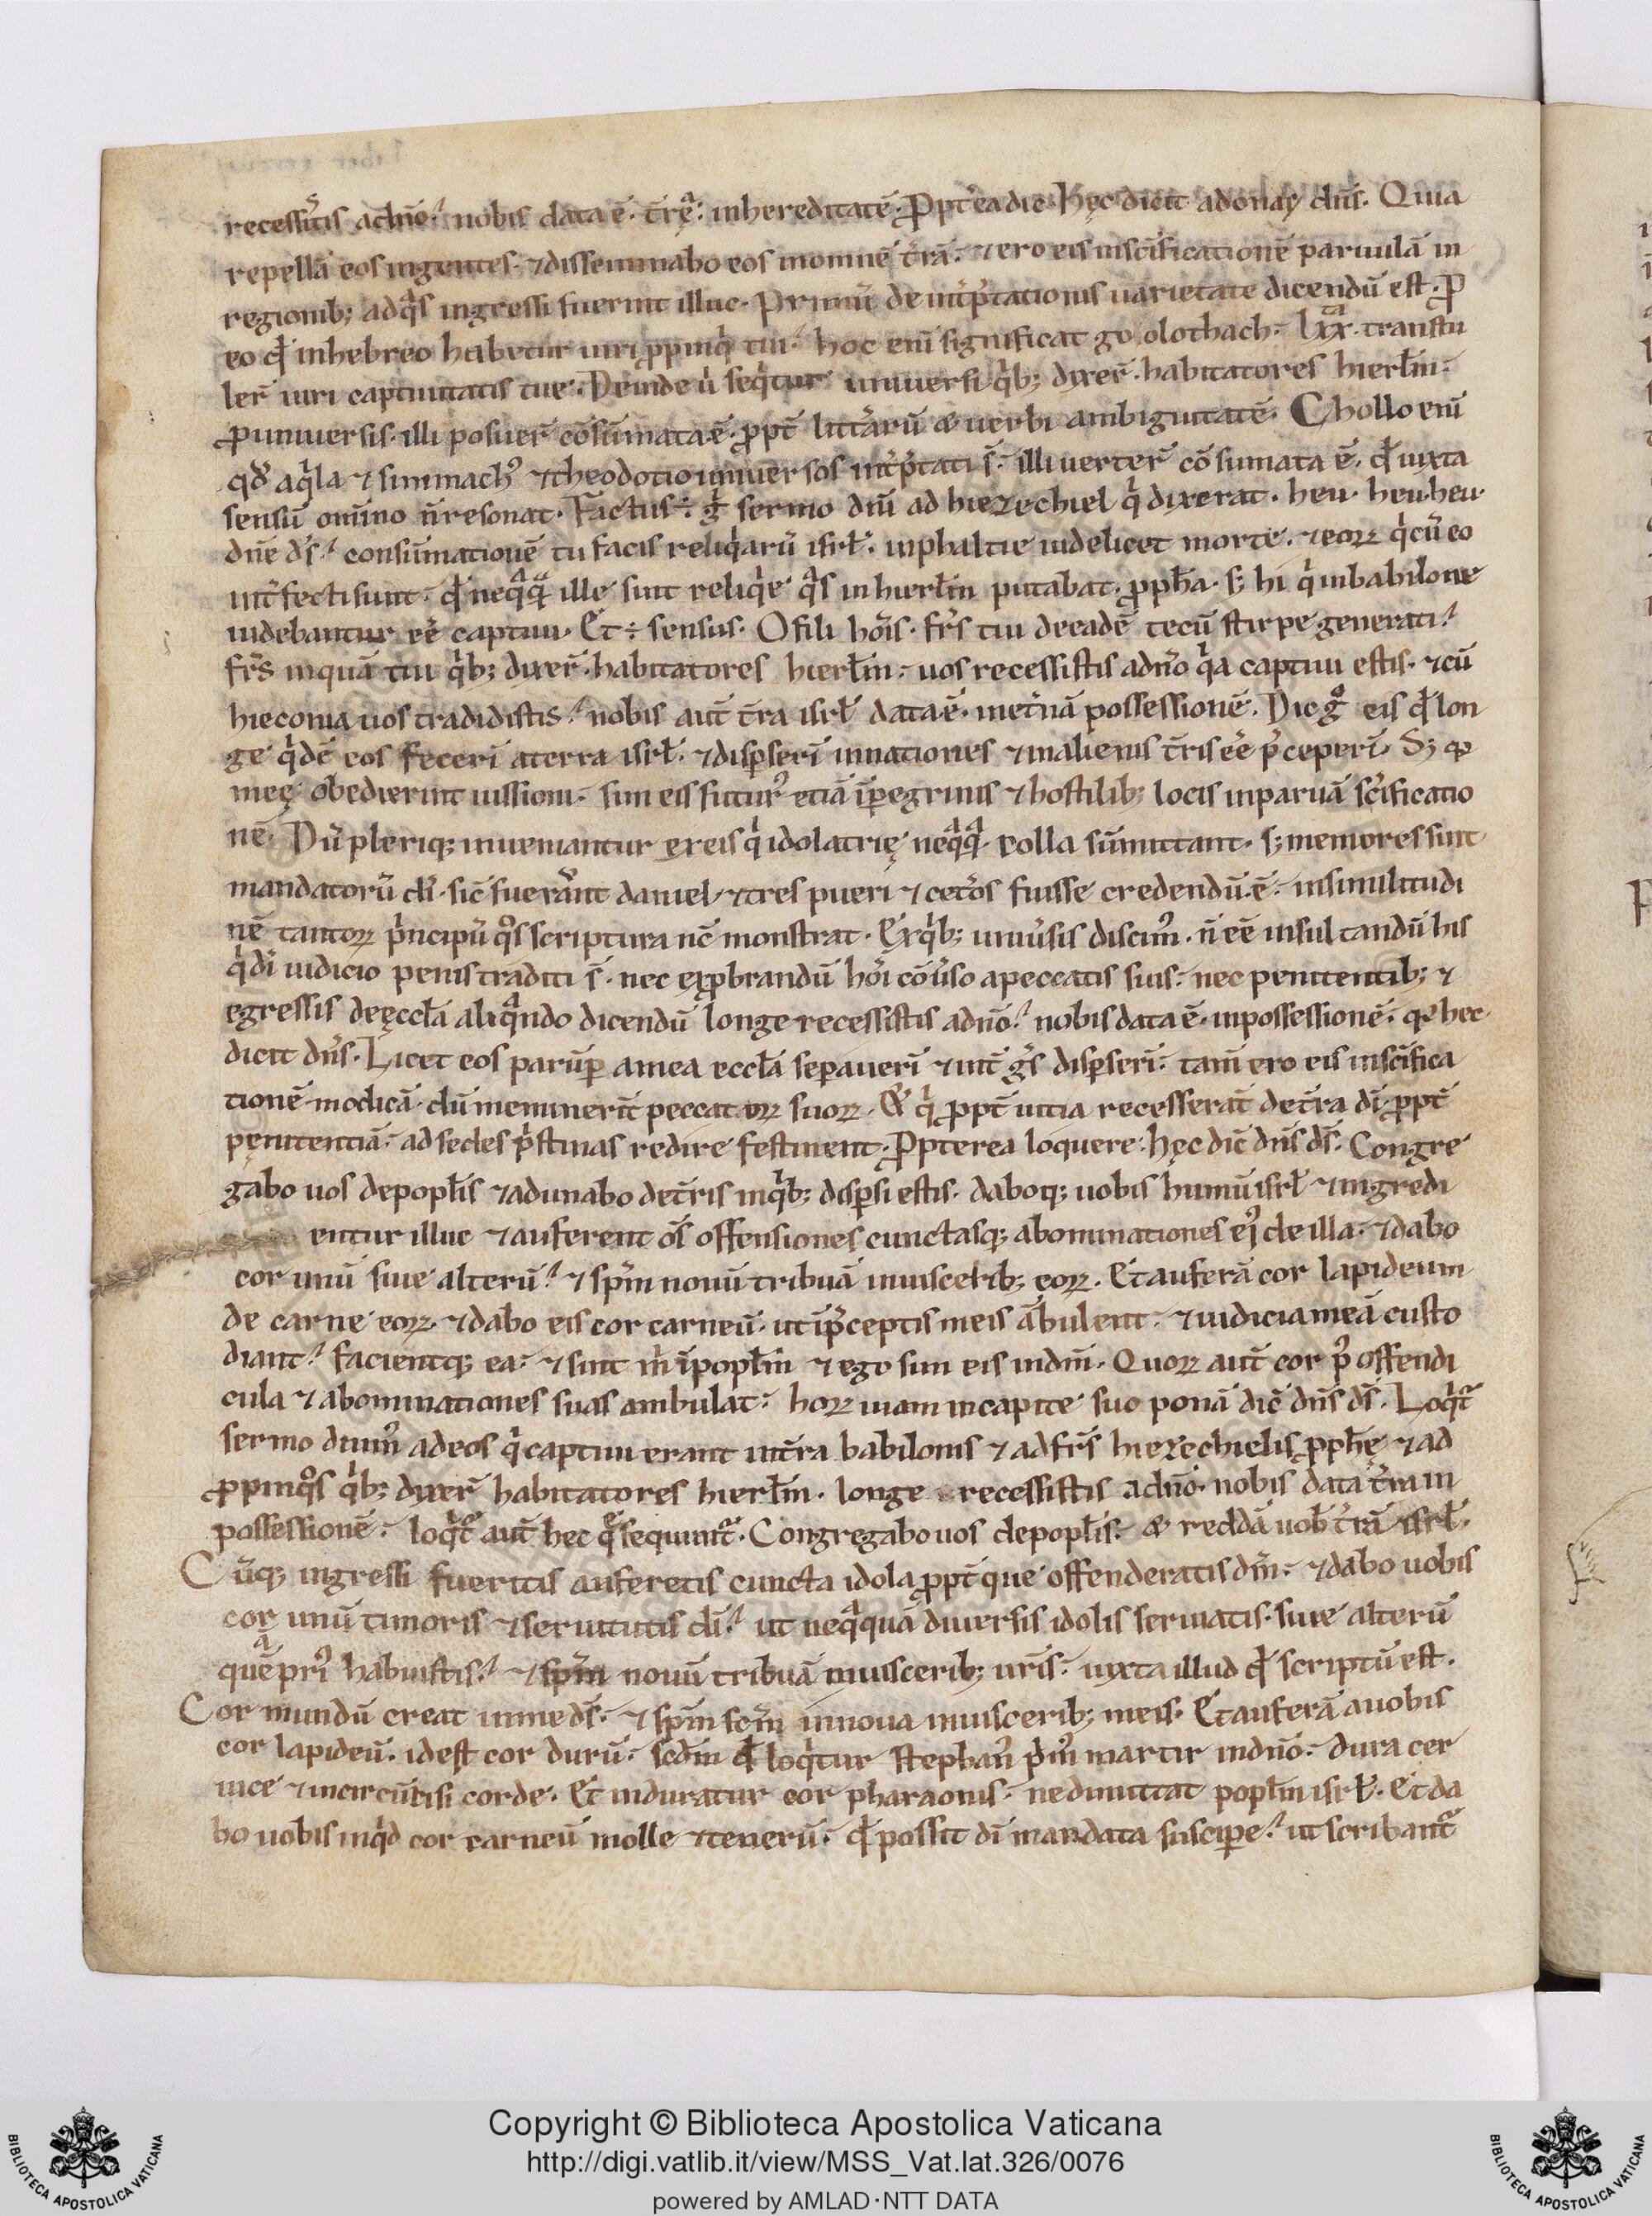 recessistis a dño. nobis data ē. t̃rę. in hereditatē. Ꝓpt̃ea dic. Hęc dicit adonay dñs. Quia
repellā eos in gentes. ⁊ disseminabo eos in omnē t̃rā. ⁊ ero eis in sc̃ificationē paruulā in
regionib; ad q̃s ingressi fuerint illuc. Primū de int̃p̃tationis uarietate dicendū est. ꝑ
eo qđ in hebreo habetur uiri ꝓpinq̃ tui. hoc enī significat geolothach. lxx. transtu
ler̃ uiri captiuitatis tue. Deinde ũ seq̃tur uniuersi q̃b; dixer̃. habitatores hierłm.
ꝓ uniuersis. illi posuer̃ cōsūmata ē. ꝓpt̃ litt̃arū & uerbi ambiguitatē. Chollo enī
qđ aq̃la ⁊ simmach᾽ ⁊ theodotio uniuersos int̃p̃tati s̃. illi uerter̃ cōsumata ē. qđ iuxta
sensū om̃ino ñ resonat. Factus ÷ g̃ sermo dñi ad hiezechiel q̃ dixerat. heu. heu. heu.
dñe d̃s. consūmationē tu facis reliq̃arū isrł. in phaltie uidelicet morte. ⁊ eoꝝ q̃ cū eo
int̃fecti sunt. qđ neq̃q̃ ille sint reliq̃e q̃s in hierłm putabat. ꝓpħa. s; hi q̃ in babilone
uidebantur eē captiui. Et ÷ sensus. O fili hõis. fr̃s tui de eadē tecū stirpe generati.
fr̃s inquā tui q̃b; dixer̃. habitatores hierłm. uos recessistis a dño q̃a captiui estis. ⁊ cū
hieconia uos tradidistis. nobis aut̃ t̃ra isrł data ē. in et̃nā possessionē. Dic g̃ eis qđ lon
ge q̃dē eos feceri a terra isrł. ⁊ disp̃seri in nationes ⁊ in alienis t̃ris eē p̃ceperī. S; q̃
meę obedierint iussioni. sim eis futur᾽ etiā ī ꝑegrinis ⁊ hostilib; locis in paruā sc̃ificatio
nē. Dū pleriq; inueniantur ex eis q̃ idolatrię neq̃q̃. colla sūmittant. s; memores sint
mandatorū di. sic̃ fuerunt daniel ⁊ tres pueri ⁊ cet̃os fuisse credendū. ē. in similitudi
nē tantoꝝ p̃ncipū q̃s scriptura nc̃ monstrat. Ex q̃b; uniũsis discim᾽. ñ eē insultandū his
q̃ di iudicio penis traditi s̃. nec exꝓbrandū hõi cōũso a peccatis suis. nec penitentib; ⁊
egressis de ęccła aliq̃ndo dicendū longe recessistis a dño. nobis data ē. in possessionē. q̃ hec
dicit dñs. Licet eos parūꝑ a mea eccła sepaueri ⁊ int̃ g̃s disp̃seri. tam̃ ero eis in sc̃ifica
tionē modicā. dū meminerit̃ peccatoꝝ suoꝝ. Et q̃ ꝓpt̃ uitia recesserat̃ de t̃ra di. ꝓpt̃
pęnitentiā. ad sedes p̃stinas redire festinent. Ꝓpterea loquere. hęc dic̃ dñs d̃s. Congre
gabo uos de popłis ⁊ adunabo de t̃ris in q̃b; disp̃si estis. daboq; uobis humū isrł ⁊ ingredi
entur illuc ⁊ auferent õs offensiones cunctasq; abominationes ei᾽ de illa. ⁊ dabo
cor unū siue alterū. ⁊ sp̃m nouū tribuā in uiscerib; eoꝝ. Et auferā cor lapideum
de carne eoꝝ. ⁊ dabo eis cor carneū. ut ī p̃ceptis meis ābulent. ⁊ iudicia meā custo
diant. facientq; ea. ⁊ sint m̃ ī popłm ⁊ ego sim eis in dm̃. Quoꝝ aut̃ cor p̃ offendi
cula ⁊ abominationes suas ambulat. hoꝝ uiam in capite suo ponā dic̃ dñs d̃s. Loq̃t̃
sermo diuin᾽ ad eos q̃ captiui erant in t̃ra babilonis ⁊ ad fr̃s hiezechielis ꝓpħę ⁊ ad
ꝓpinq̃s q̃b; dixer̃ habitatores hierłm. longe recessistis a dño. nobis data t̃ra in
possessionē. loq̃t̃ aut̃ hec q̃ sequunt̃. Congregabo uos de popłis. & reddā uob̃ t̃rā isrł.
Cūq; ingressi fueritis auferetis cuncta idola ꝓpt̃ que offenderatis dm̃. ⁊ dabo uobis
cor unū timoris ⁊ seruitutis di. ut neq̃quā diuersis idolis seruiatis. siue alterū
quē pri᾽ habuistis. ⁊ sp̃m nouū tribuā in uiscerib; ur̃is. iuxta illud qđ scriptū est.
Cor mundū creat in me d̃s. ⁊ sp̃m sc̃m innoua in uiscerib; meis. Et auferā a uobis
cor lapideū. id est cor durū. sc̃dm qđ loq̃tur stephan᾽ p̃m᾽ martir in dño. dura cer
uice ⁊ incircūcisi corde. Et induratur cor pharaonis. ne dimittat popłm isrł. Et da
bo uobis inq̃d cor carneū molle ⁊ tenerū. qđ possit di mandata suscipe. ut scribant̃
Copyright © Biblioteca Apostolica Vaticana
http://digi.vatlib.it/view/MSS_Vat.lat.326/0076
powered by AMLAD·NTT DATA
BIBLIOTECA APOSTOLICA VATICANA
BIBLIOTECA APOSTOLICA VATICANA